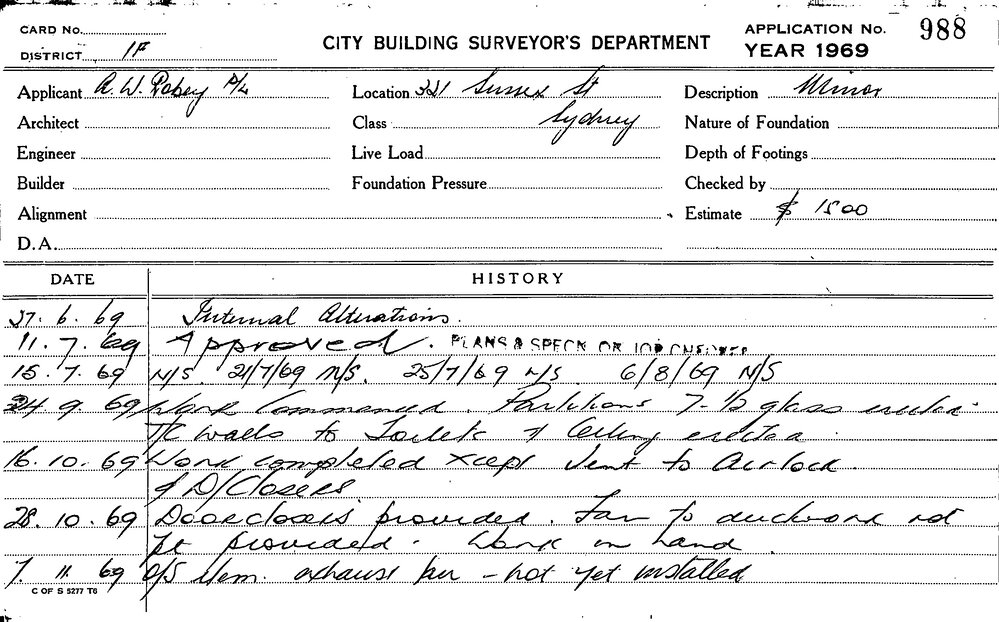 CARD No.
DISTRICT 1F
CITY BUILDING SURVEYOR'S DEPARTMENT
APPLICATION No. 988
YEAR 1969
Applicant A. W. Robey P/L
Location 321 Sussex St
Description Minor
Architect
Class Sydney
Nature of Foundation
Engineer
Live Load
Depth of Footings
Builder
Foundation Pressure
Checked by
Alignment
Estimate $ 1500
D.A.
DATE HISTORY
27. 6. 69 Internal Alterations.
11. 7. 69 Approved. PLANS & SPECN ON JOB CHECKED
15. 7. 69 N/S. 21/7/69 N/S. 25/7/69 N/S 6/8/69 N/S
24. 9. 69 Work Commenced. Partitions 7- ½ glass erected.
T/C walls to Toilets & Ceiling erected.
16. 10. 69 Work completed xcept vent to Airlock
& D/Closers
28. 10. 69 Doorclosers provided. Fan to ductwork not
yet provided. Work in hand.
7. 11. 69 O/S item. exhaust fan - not yet installed
C OF S 5277 T6